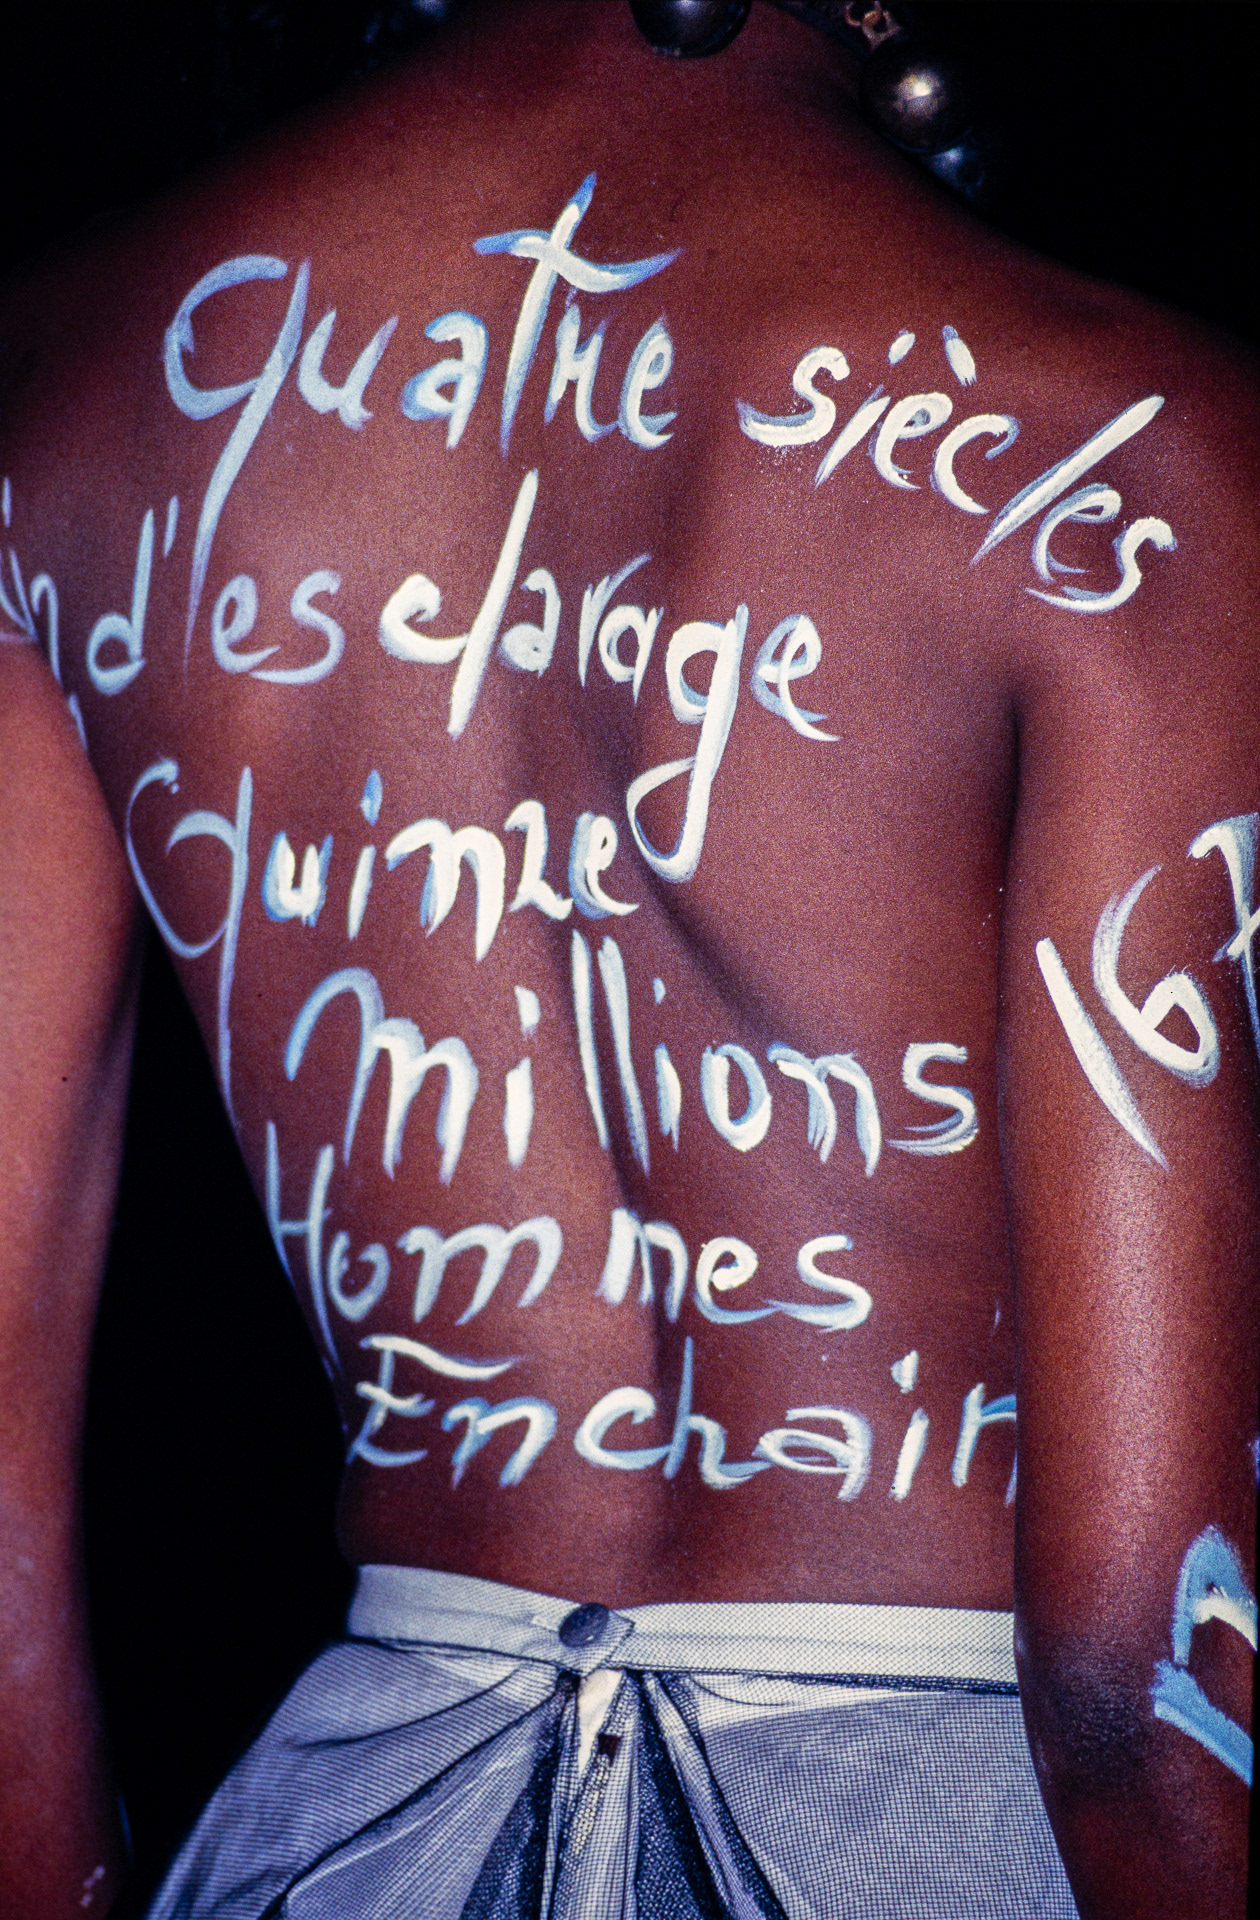 Quatre siècles
d'esclavage
Quinze
Millions
Hommes
Enchain